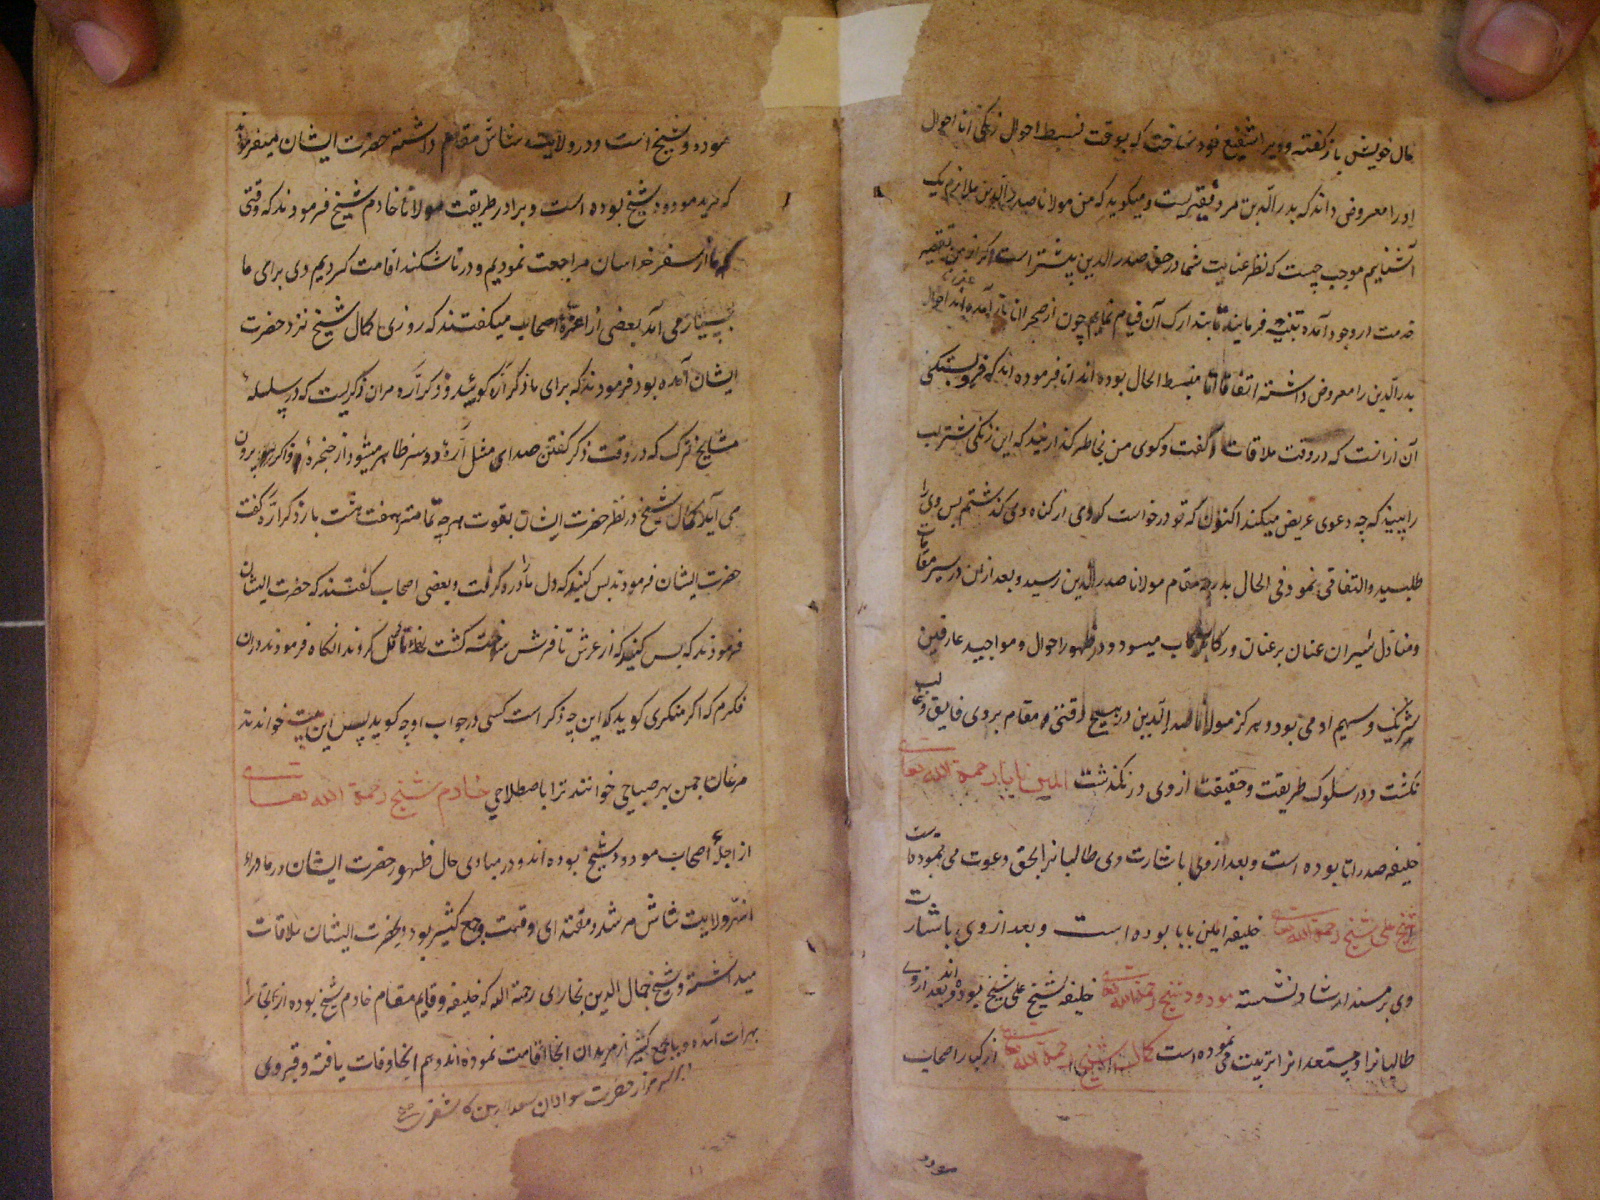 حال خویش باز گفته و ویرا شفیع خود ساخت که بوقت بسط احوال زنگی اتا احوال
او را معروض داند که بدرالدین مرد فقیریست و میگوید که من مولانا صدرالدین ملازم یک
آشنایم موجب چیست که نظر عنایت شما در حق صدرالدین بیشتر است اگر از من تقصیر
خدمت در وجود آمده تنبیه فرمایند تا بتدارک آن قیام نمایم چون از صحرا اتا آمده اند احوال
بدرالدین را معروض داشته اتفاقا اتا منبسط الحال بوده اند اتا فرموده اند که
آن از انست که در وقت ملاقات گفت و گوی من بخاطر گذرانید که این زنگی شتر لب
را ببینید که چه دعوی عریض میکند اکنون که تو درخواست کردی از گناه وی گذشتم پس وی را
طلبیده و التفاتی نمود فی الحال بدرجه مقام مولانا صدرالدین رسید و بعد از من در سیر مقامات
و منازل شیران عنان بر عنان و رکاب میسود و در ظهور احوال و مواجید عارفین
شریک و سهیم او می بود و هرگز مولانا صدرالدین در هیچ وقتی و مقام بر وی فایق و غالب
نگشت و در سلوک طریقت و حقیقت از وی در نگذشت ایمن بابا رحمة الله تعالی
خلیفه صدر اتا بوده است و بعد از وی باشارت وی طالبانرا بحق دعوت می نموده است
شیخ علی شیخ رحمة الله تعالی خلیفه ایمن بابا بوده است و بعد از وی باشارت
وی بر مسند ارشاد نشسته مودود شیخ رحمة الله تعالی خلیفه شیخ علی شیخ بوده اند و بعد از وی
طالبانرا و مستعدانرا تربیت می نموده است کمال شیخ رحمة الله تعالی از کبار اصحاب
مودود
مودود شیخ است و در ولایت شاش مقام داشته حضرت ایشان میفرمودند
که مرید مودود شیخ بوده است و برادر طریقت مولانا خادم شیخ فرمودند که وقتی
که ما از سفر خراسان مراجعت نمودیم و در تاشکند اقامت کردیم وی برای ما
بسیار می آمد بعضی از اعزه اصحاب میگفتند که روزی کمال شیخ نزد حضرت
ایشان آمده بود فرمودند که برای ما ذکر اره گویید و ذکر اره مر آن ذکریست که در سلسله
مشایخ ترک که در وقت ذکر گفتن صدای مثل اره دو سر ظاهر میشود از حنجره ذاکر بیرون
می آید کمال شیخ در نظر حضرت ایشان بقوت هر چه تمامتر هفت هشت بار ذکر اره گفت
حضرت ایشان فرمودند بس کنید که دل ما درد گرفت و بعضی اصحاب گفتند که حضرت ایشان
فرمودند که بس کنید که از عرش تا فرش سوخته گشت کردند آنگاه فرمودند در آن
فکرم که اگر منکری گوید که این چه ذکر است کسی در جواب او چه گوید پس این بیت خواندند
مرغان چمن بهر صباحی خوانند ترا باصطلاحی خادم شیخ رحمة الله تعالی
از اجله اصحاب مودود شیخ بوده اند و در مبادی حال ظهور حضرت ایشان در ماوراء
النهر ولایت شاش مرشد و مقتدای وقت و جمع کثیر بود و بحضرت ایشان ملاقات
میداشته و شیخ جمال الدین بخارای رحمة الله که خلیفه و قایم مقام خادم شیخ بوده از بخارا
بهرات آمده و با جمع کثیر از مریدان آنجا اقامت نموده اند و هم آنجا وفات یافته و قبر وی
مزار حضرت مولانا سعدالدین کاشغری